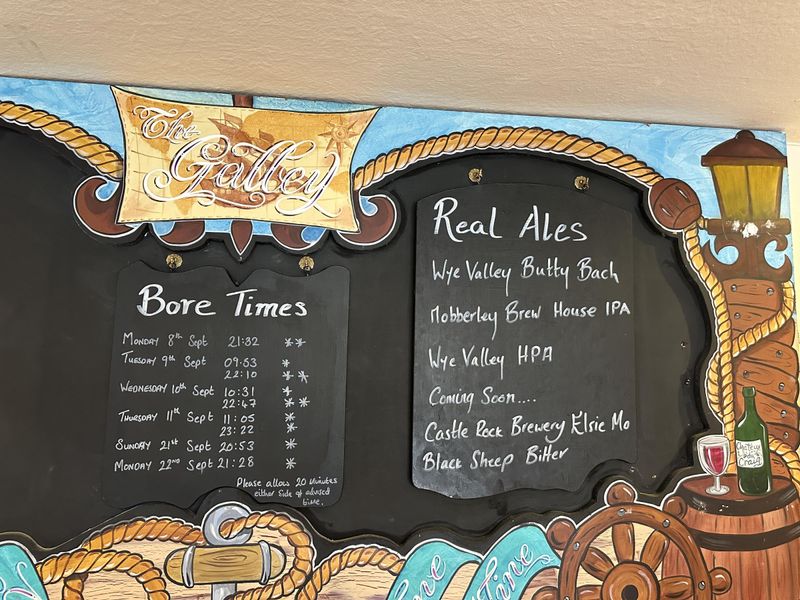 The
Galley
Bore Times
Monday 8th Sept 21:32 **
Tuesday 9th Sept 09:53 *
22:10 **
Wednesday 10th Sept 10:31 *
22:47 **
Thursday 11th Sept 11:05 *
23:22 *
Sunday 21st Sept 20:53 *
Monday 22nd Sept 21:28 *
Please allow 20 minutes
either side of advised
time.
Real Ales
Wye Valley Butty Bach
Mobberley Brew House IPA
Wye Valley HPA
Coming Soon....
Castle Rock Brewery Elsie Mo
Black Sheep Bitter
Craig